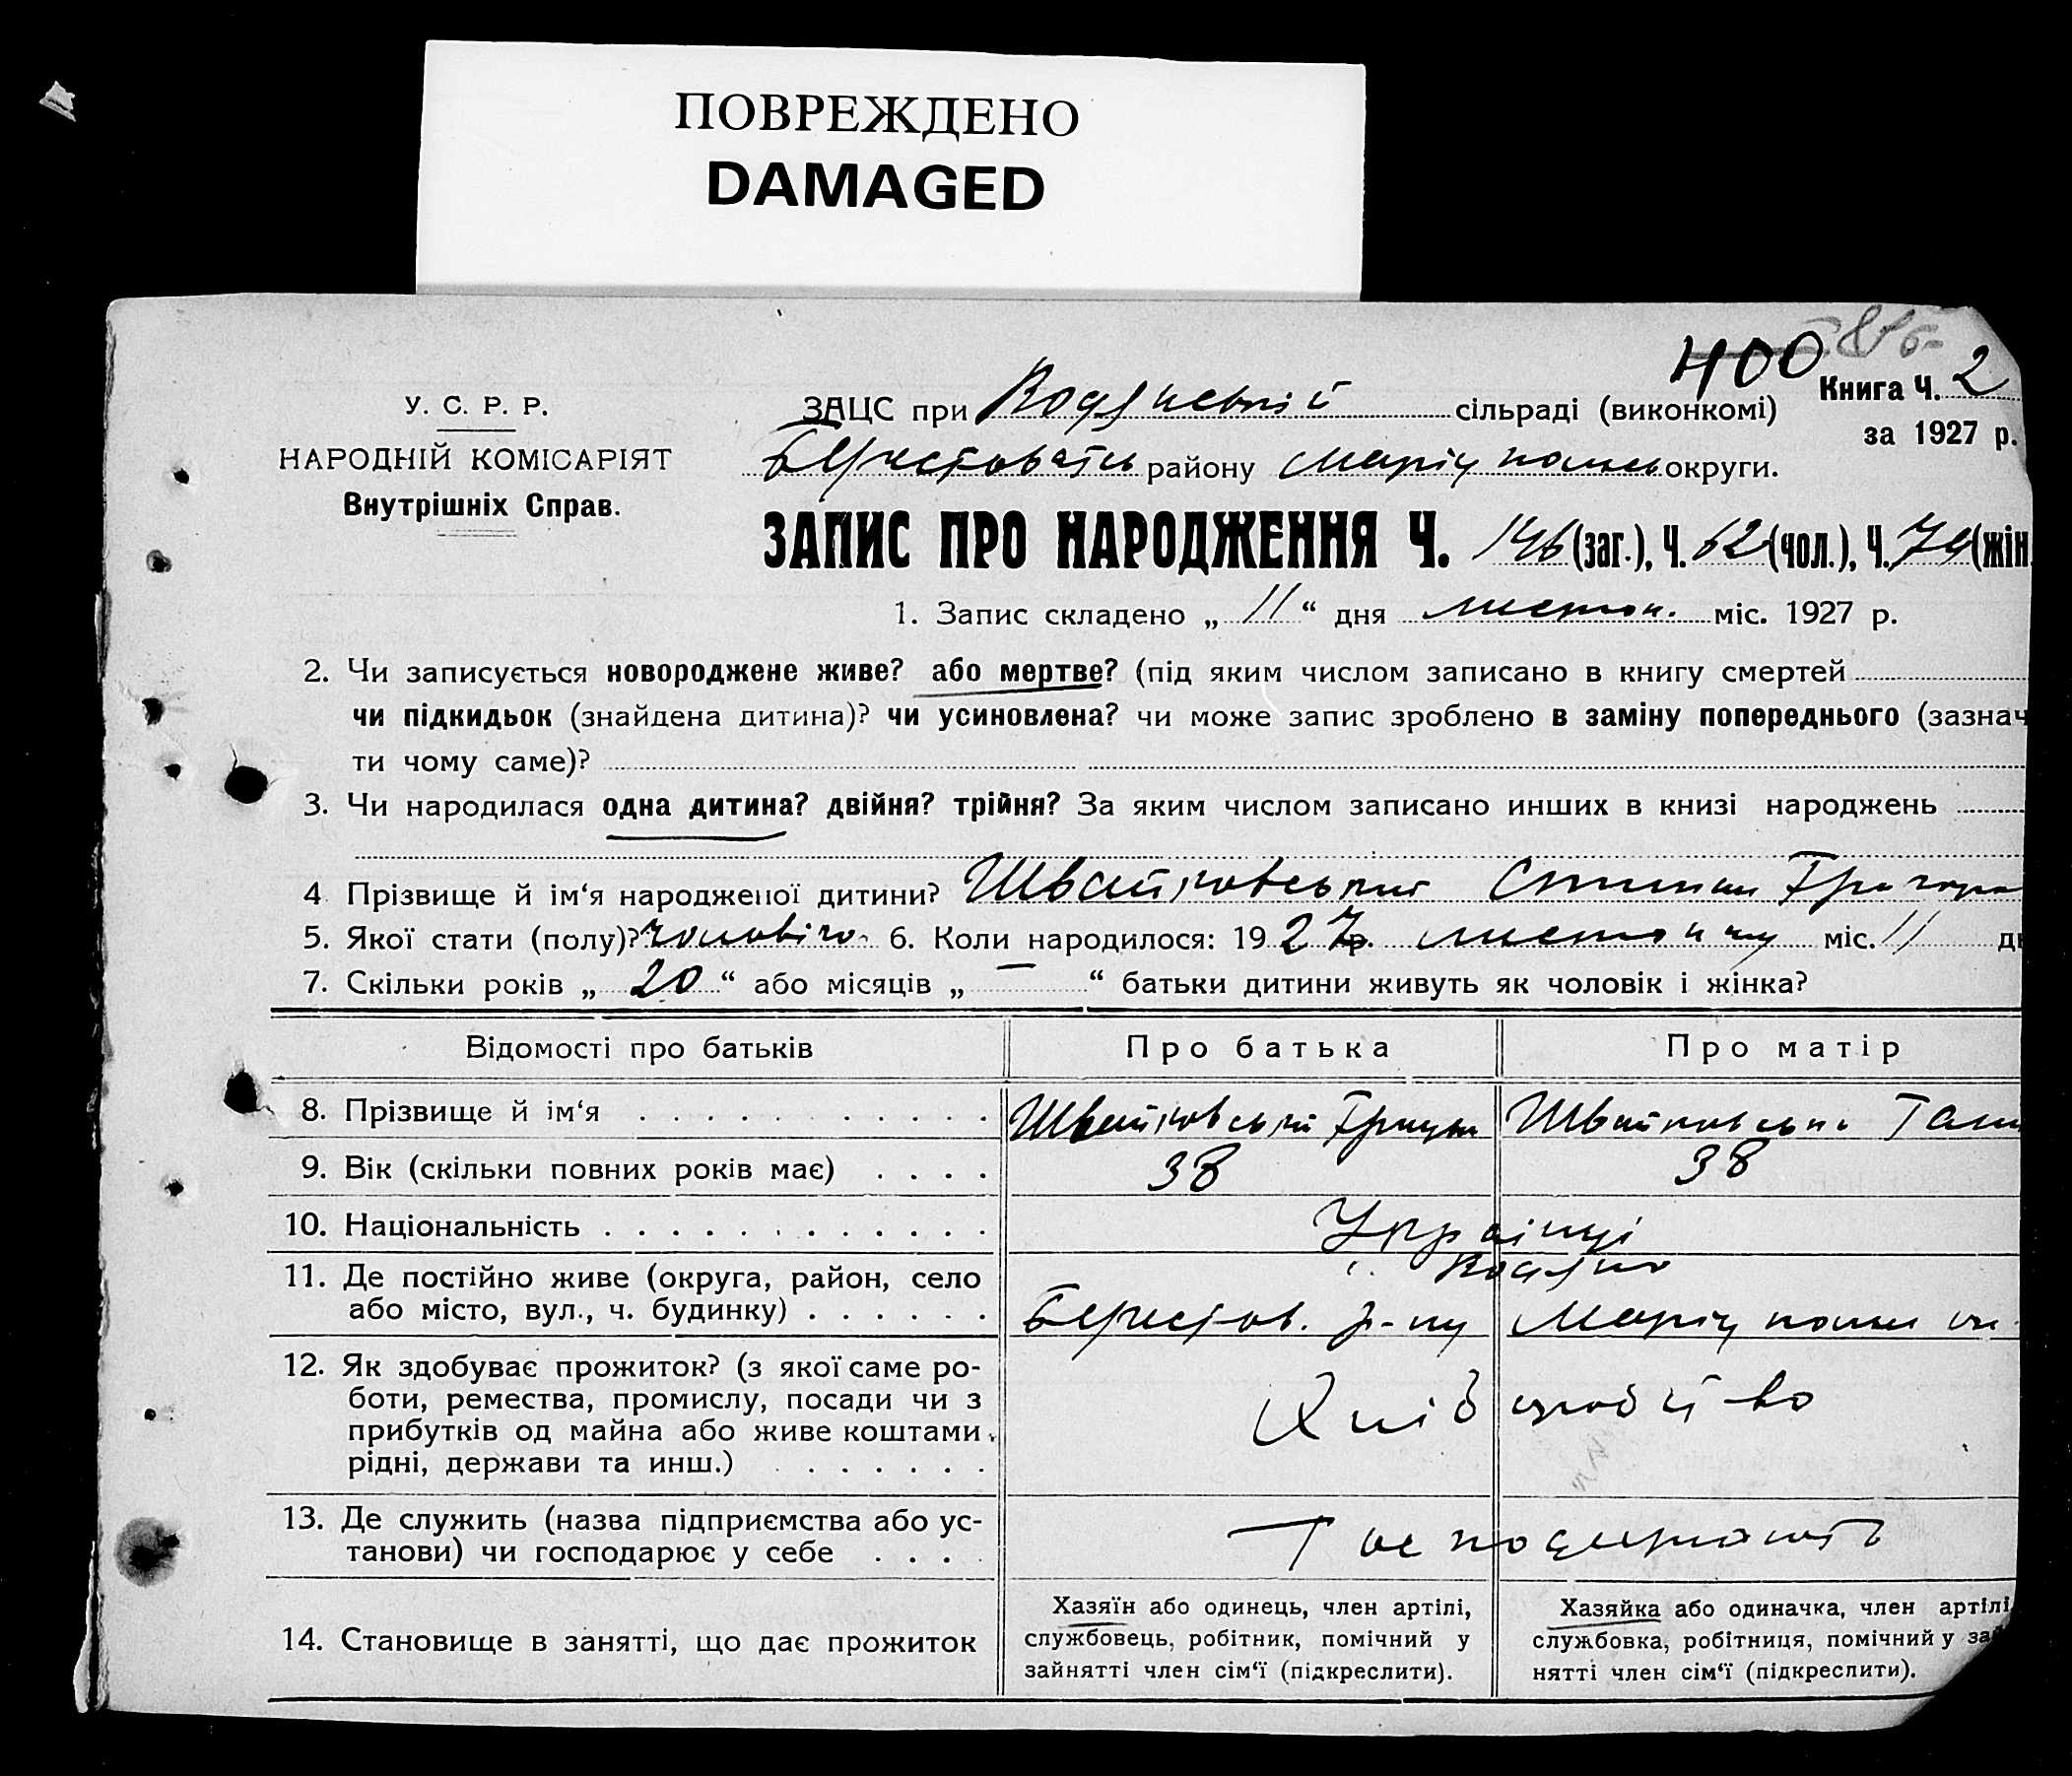 ПОВРЕЖДЕНО
DAMAGED
400
У. С. Р. Р.
НАРОДНІЙ КОМІСАРІЯТ
Внутрішніх Справ.
Книга Ч. 2
за 1927 р.
ЗАЦС при сільраді (виконкомі)
району Маріупольс округи.
ЗАПИС ПРО НАРОДЖЕННЯ Ч. 146 (заг.), Ч. 62 (чол.), Ч. 74 (жін.
1. Запис складено „ 11 “ дня листоп. міс. 1927 р.
2. Чи записується новороджене живе? або мертве? (під яким числом записано в книгу смертей
чи підкидьок (знайдена дитина)? чи усиновлена? чи може запис зроблено в заміну попереднього (зазнач
ти чому саме)?
3. Чи народилася одна дитина? двійня? трійня? За яким числом записано инших в книзі народжень
4 Прізвище й ім‘я народженої дитини? Швайковський
5. Якої стати (полу)? чоловічо 6. Коли народилося: 1927 р. листопаду міс. 11
7. Скільки років „ 20 “ або місяців „ — “ батьки дитини живуть як чоловік і жінка?
Відомості про батьків Про батька Про матір
8. Прізвище й ім‘я Швайковський Грицько Швайковська
9. Вік (скільки повних років має) 38 38
10. Національність Українці
11. Де постійно живе (округа, район, село
або місто, вул., ч. будинку) Берестов. р-ну Маріуполь
12. Як здобуває прожиток? (з якої саме ро-
боти, ремества, промислу, посади чи з
прибутків од майна або живе коштами
рідні, держави та инш.) Хліборобство
13. Де служить (назва підприємства або ус-
танови) чи господарює у себе Господарюють
14. Становище в занятті, що дає прожиток
Хазяїн або одинець, член артілі,
службовець, робітник, помічний у
зайнятті член сім‘ї (підкреслити).
Хазяйка або одиначка, член артілі
службовка, робітниця, помічний у за
нятті член сім‘ї (підкреслити).